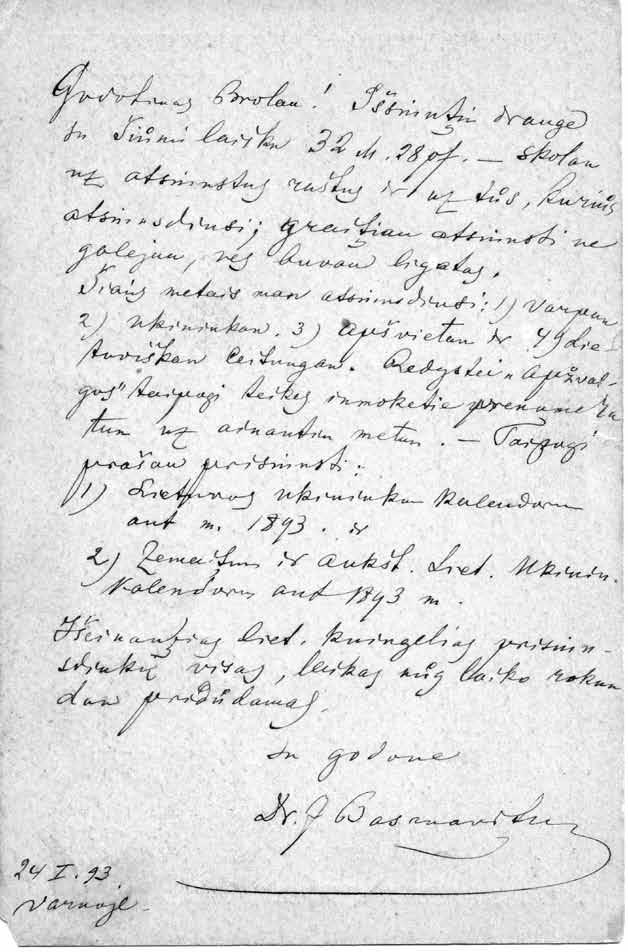 Godotinas Brolau! Išsiuntiu drauge
su šiůmi laišku 32 M. 28 pf. — skolan
už atsiunstus raštus ir už tůs, kuriůs
atsiunsdiusi; greičiau atsiunsti ne
galejau, nes buvau ligotas.
Šiais metais man atsiunsdiusi: 1) Varpan
2) Ukininkan. 3) Apšvietan ir 4) Lie-
tuviškan Ceitungan. Redystei „Apžval-
gos" taipogi teikes inmoketie prenumera
tan už ainantin metan. — Taipogi
prašau prisiunsti:
1) Lietuvos Ukininkan Kalendorin
ant m. 1893. ir
2) Žemaitiu ir aukšt. Liet. Ukinin.
Kalendorin ant 1893 m.
Išeinančias Liet. kningelias prisiun-
sdinkie visas, laikas nůg laiko rokun
dan pridůdamas.
su godone
Dr. J Basanavičius
24 I. 93.
Varnoje.